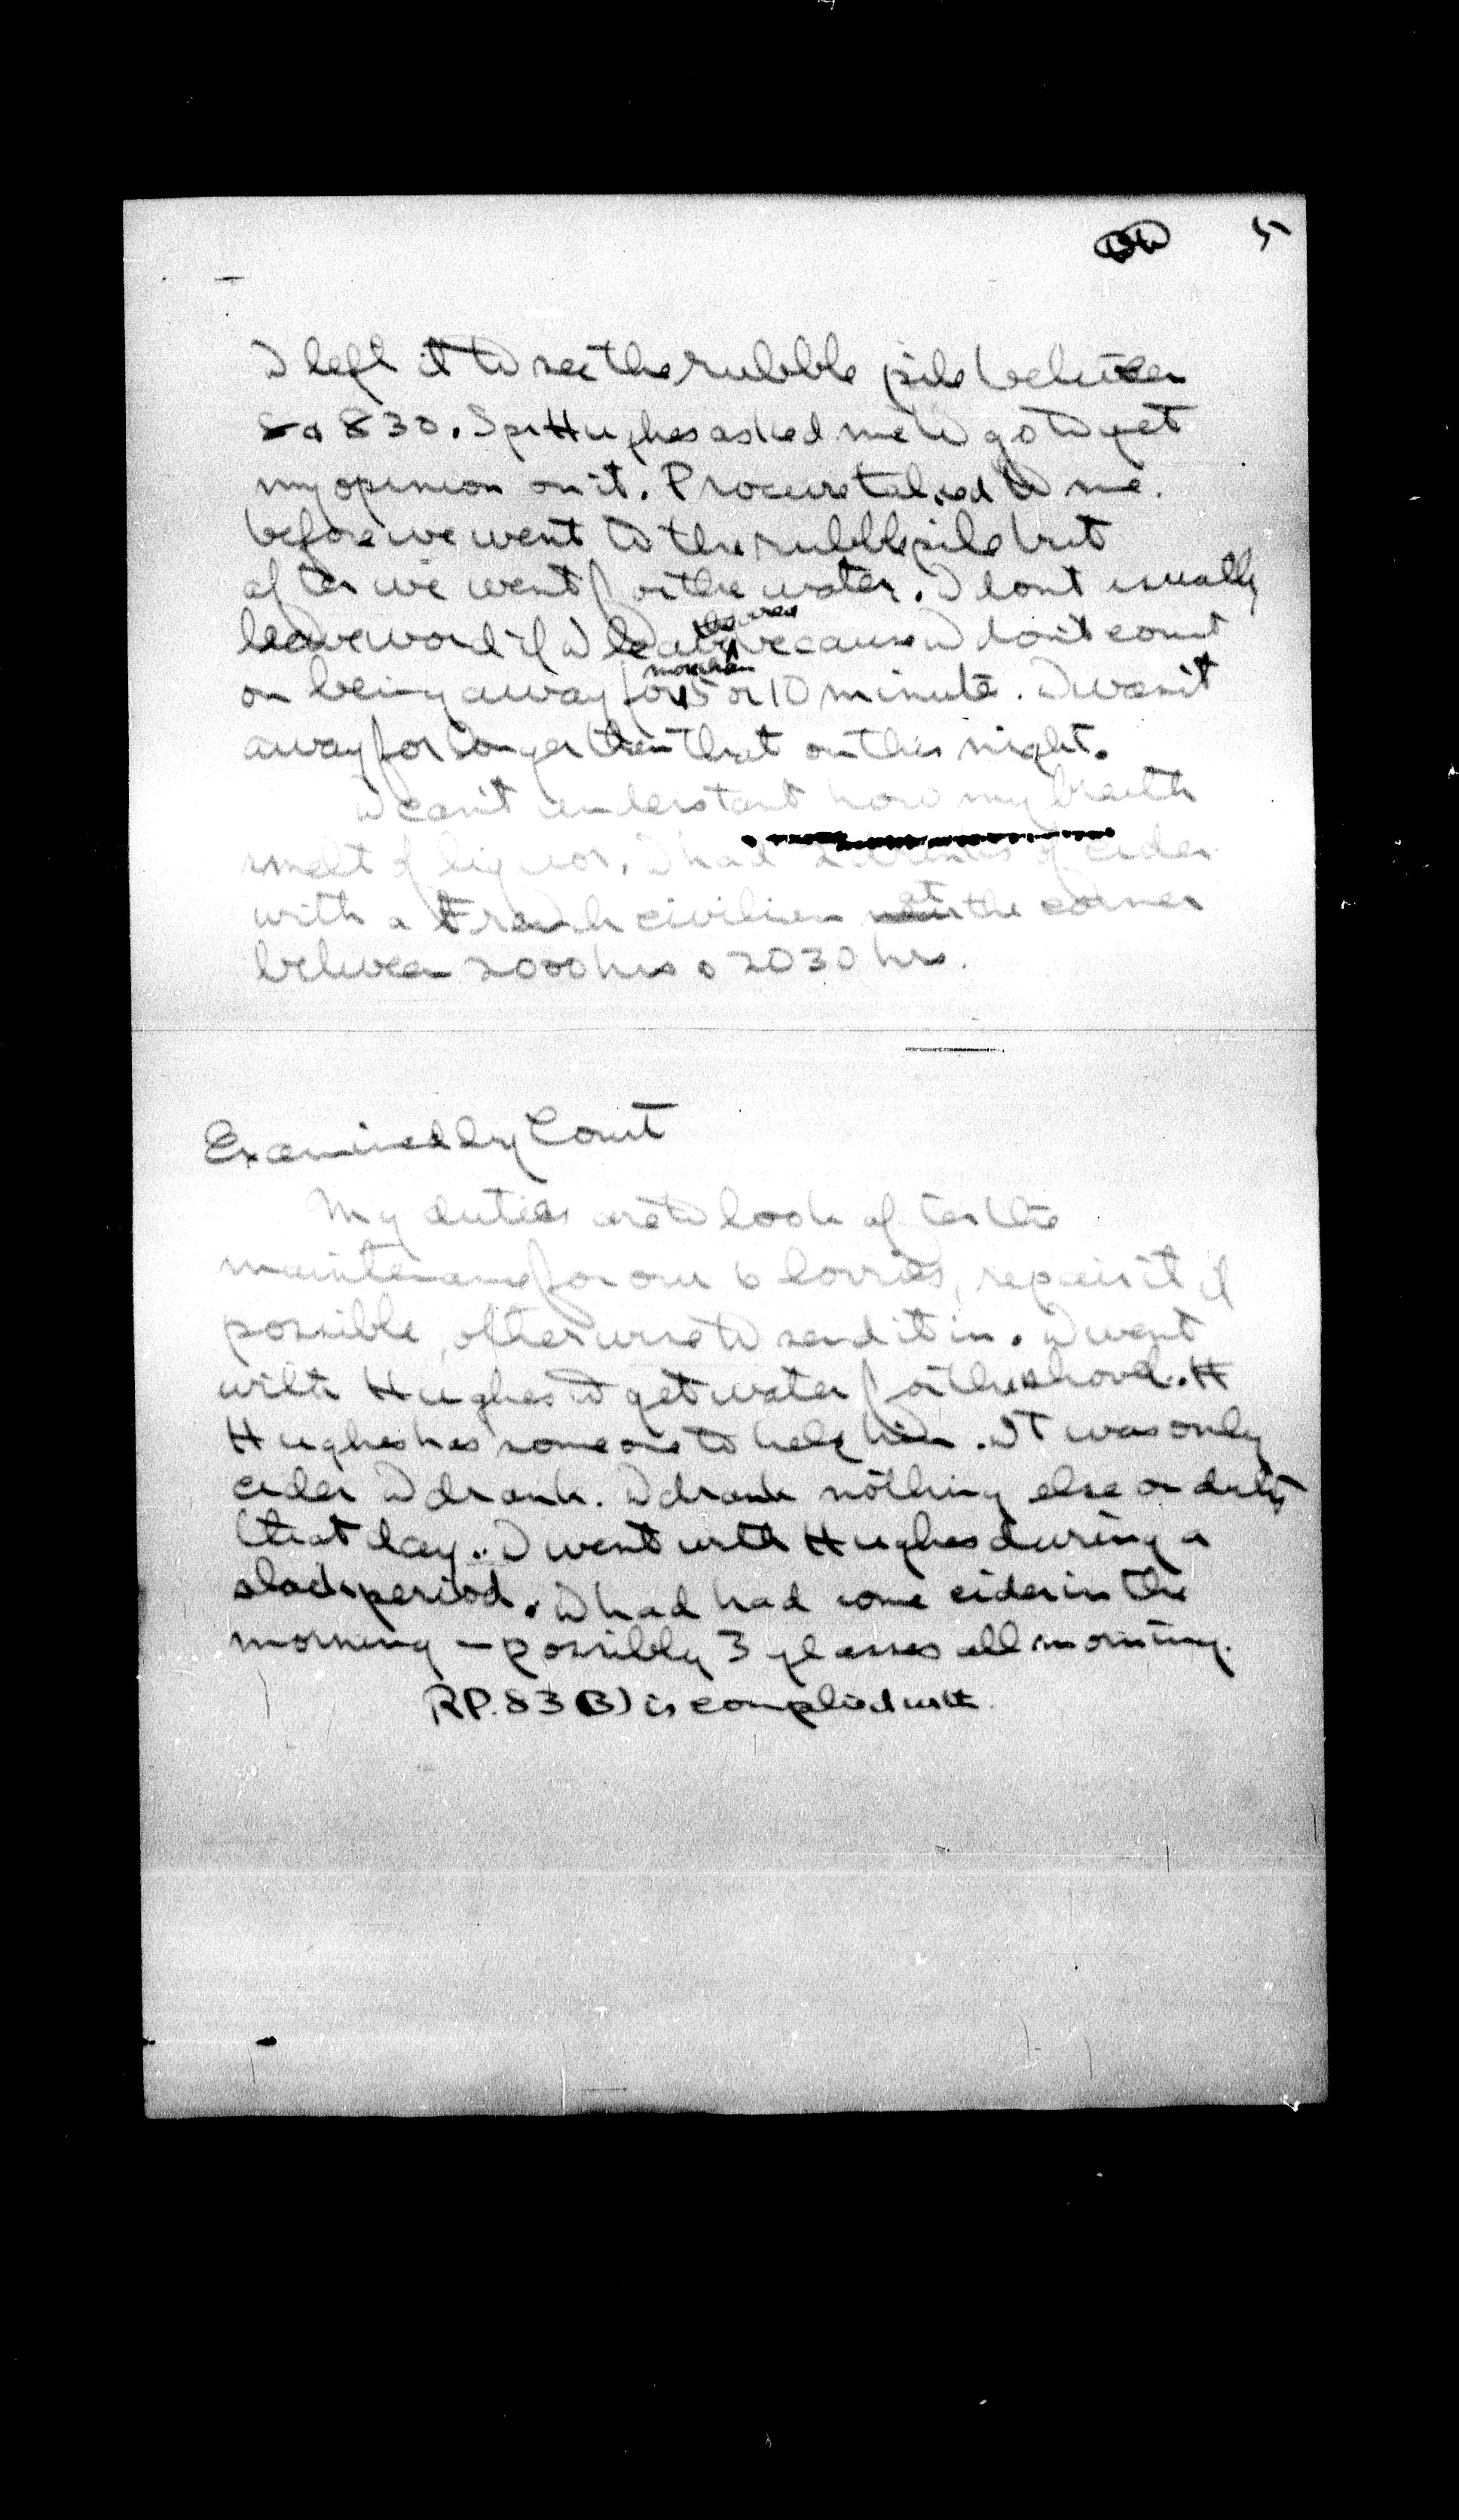 5
I left it to see the rubble pile between
8 & 830. Spr Hughes asked me to go to get
my opinion on it. Procure talked to me.
before we went to the rubble pile but
after we went for the water. I dont usually
leave word if I leave the area because I don't count
on being away for more than 5 or 10 minute. I wasn't
away for longer than that on this night.
I can't understant how my breath
smelt of liquor. I had of cider
with a French civilian at the corner
between 2000 hrs & 2030 hrs.
Examined by Court
My duties are to look after the
maintenance for our 6 lorries, repair it if
possible, otherwise to send it in. I went
with Hughes to get water for the shovel. H
Hughes has someone to help him. It was only
cider I drank. I drank nothing else on duty
that day. I went with Hughes during a
slack period. I had had some cider in the
morning - possibly 3 glasses all morning.
RP. 83 (B) is complied with.